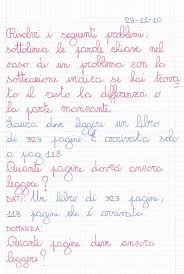 29-11-10
Risolvi i seguenti problemi,
sottolinea le parole chiave nel
caso di un problema con la
sottrazione indica se hai trova
to il resto la differenza o
la parte mancante.
Laura deve leggere un libro
di 323 pagine. È arrivata solo
a pag. 118
Quante pagine dovrà ancora
leggere?
DATI: Un libro di 323 pagine,
118 pagine che è arrivata.
DOMANDA.
Quante pagine deve ancora
leggere?